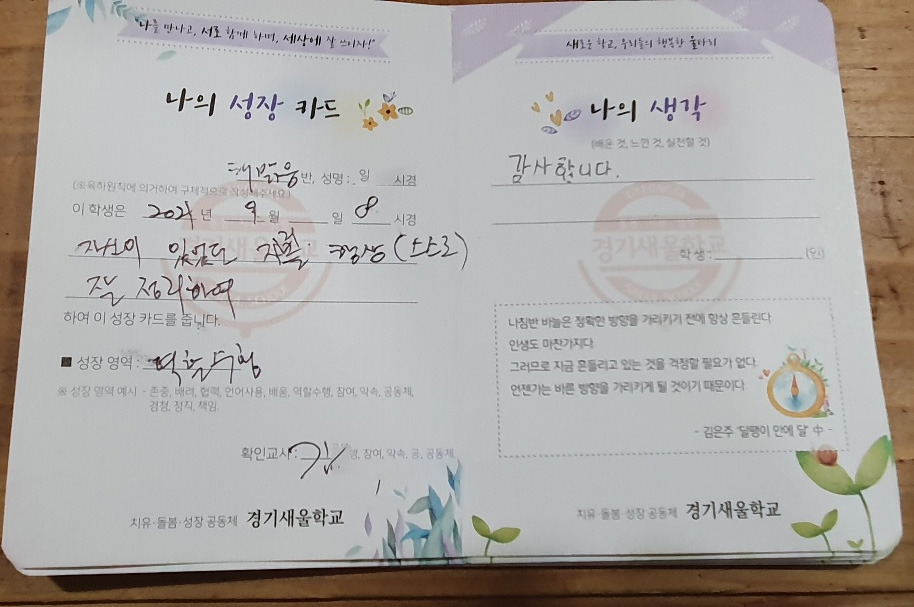 "나를 만나고, 서로 함께 하며, 세상에 잘 쓰이자!"
나의 성장 카드
반, 성명: 일 시경
(※육하원칙에 의거하여 구체적으로 작성해주세요.)
이 학생은 2021년 9월 일 8 시경
(스스로)
잘 정리하여
하여 이 성장 카드를 줍니다.
■ 성장 영역 : 역할수행
※ 성장 영역 예시 - 존중, 배려, 협력, 언어사용, 배움, 역할수행, 참여, 약속, 공동체,
경청, 정직, 책임.
확인교사 : 행, 참여, 약속, 공, 공동체,
치유·돌봄·성장 공동체 경기새울학교
새로운 학교, 우리들의 행복한 울타리
나의 생각
(배운 것, 느낀 것, 실천할 것)
감사합니다.
경기새울학교
학생 : (인)
나침반 바늘은 정확한 방향을 가리키기 전에 항상 흔들린다
인생도 마찬가지다.
그러므로 지금 흔들리고 있는 것을 걱정할 필요가 없다.
언젠가는 바른 방향을 가리키게 될 것이기 때문이다
- 김은주 '달팽이 안에 달' 中 -
치유·돌봄·성장 공동체 경기새울학교